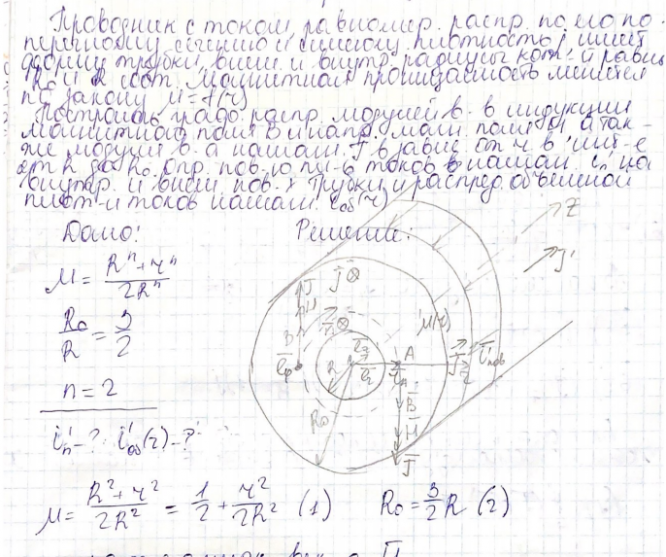 Проводник с током, равномер. распр. по его по-
перечному сечению и имеющему плотность j имеет
форму трубки, внеш. и внутр. радиусы кот-й равны
R₀ и R соот. Магнитная проницаемость меняется
по закону μ = f(r)
Построить граф. распр. модулей в. в индукции
магнитного поля B и напр. магн. поля H, а так-
же модуля в-а намагн. J в завис. от r в инт-е
от R до R₀. Опр. пов-ю пл-ь токов намагн. i'п на
внутр. и внеш. пов. трубки и распред. объемной
плот-и токов намагн. i'об(r)
Дано: Решение:
μ = (Rⁿ + rⁿ) / 2Rⁿ
R₀/R = 3/2
n = 2
i'п - ? i'об(r) - ?
Z
J'
j ⊗
μ(r)
A
B
H
J
R
R₀
i'пов
μ = (R² + r²) / 2R² = 1/2 + r² / 2R² (1) R₀ = 3/2 R (2)